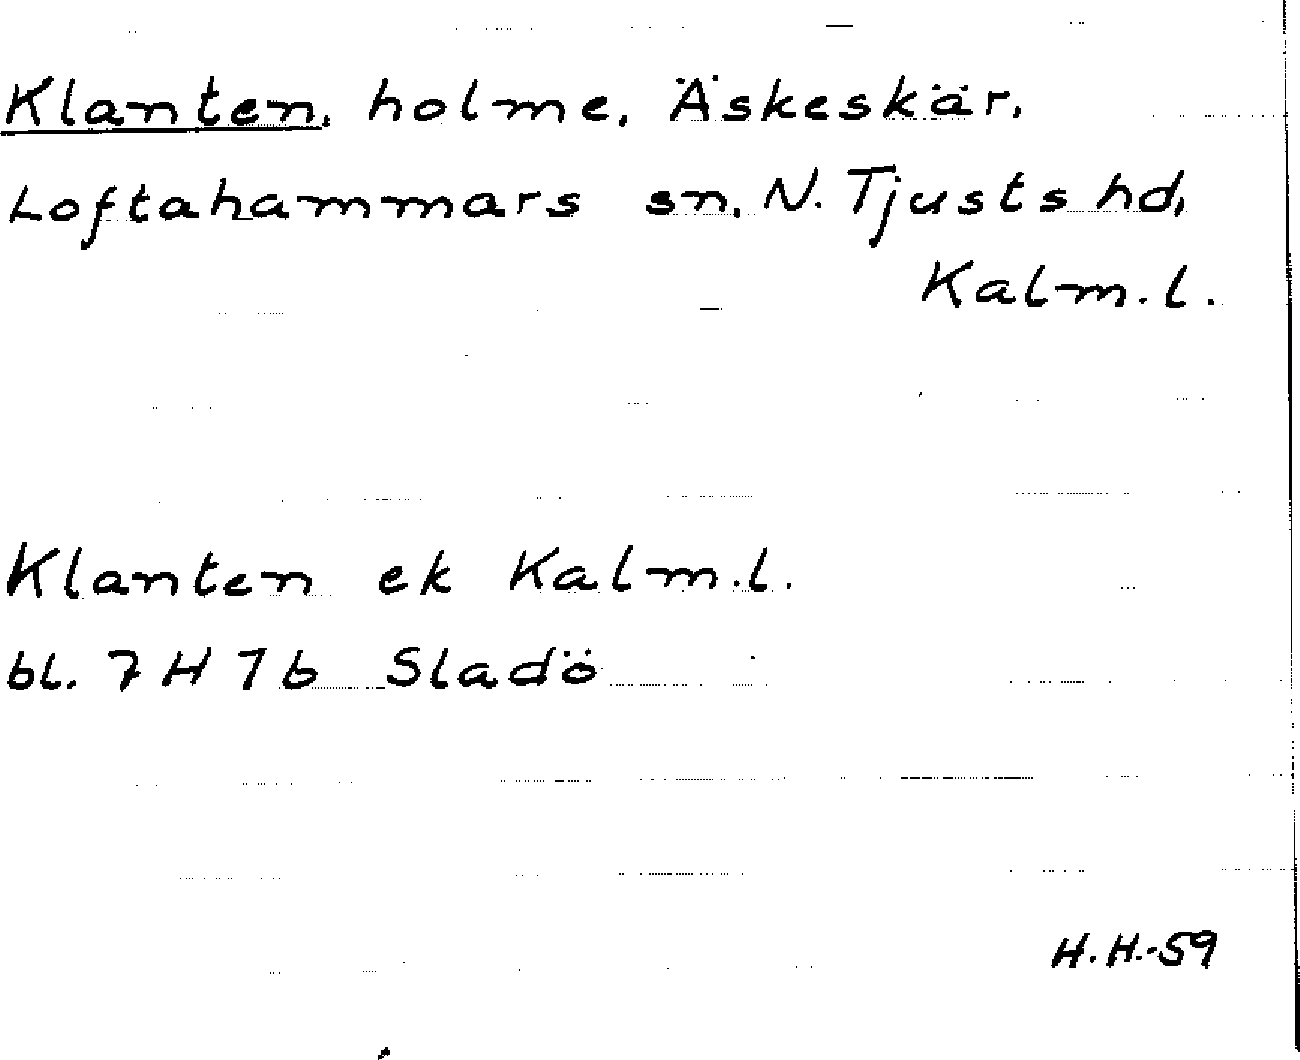 Klanten, holme, Äskeskär,
Loftahammars sn, N. Tjusts hd,
Kalm. l.
Klanten ek Kalm. l.
bl. 7 H 7 b Sladö
H. H.-59